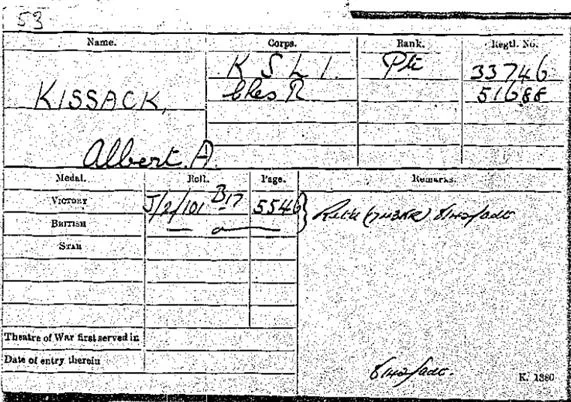 53
Name. Corps. Rank. Regtl. No.
KISSACK, K S L I. Pte 33746
Ches R 51688
Albert. A.
Medal. Roll. Page. Remarks.
VICTORY J/2/101 B17 5546
BRITISH
STAR
Theatre of War first served in
Date of entry therein
K. 1380